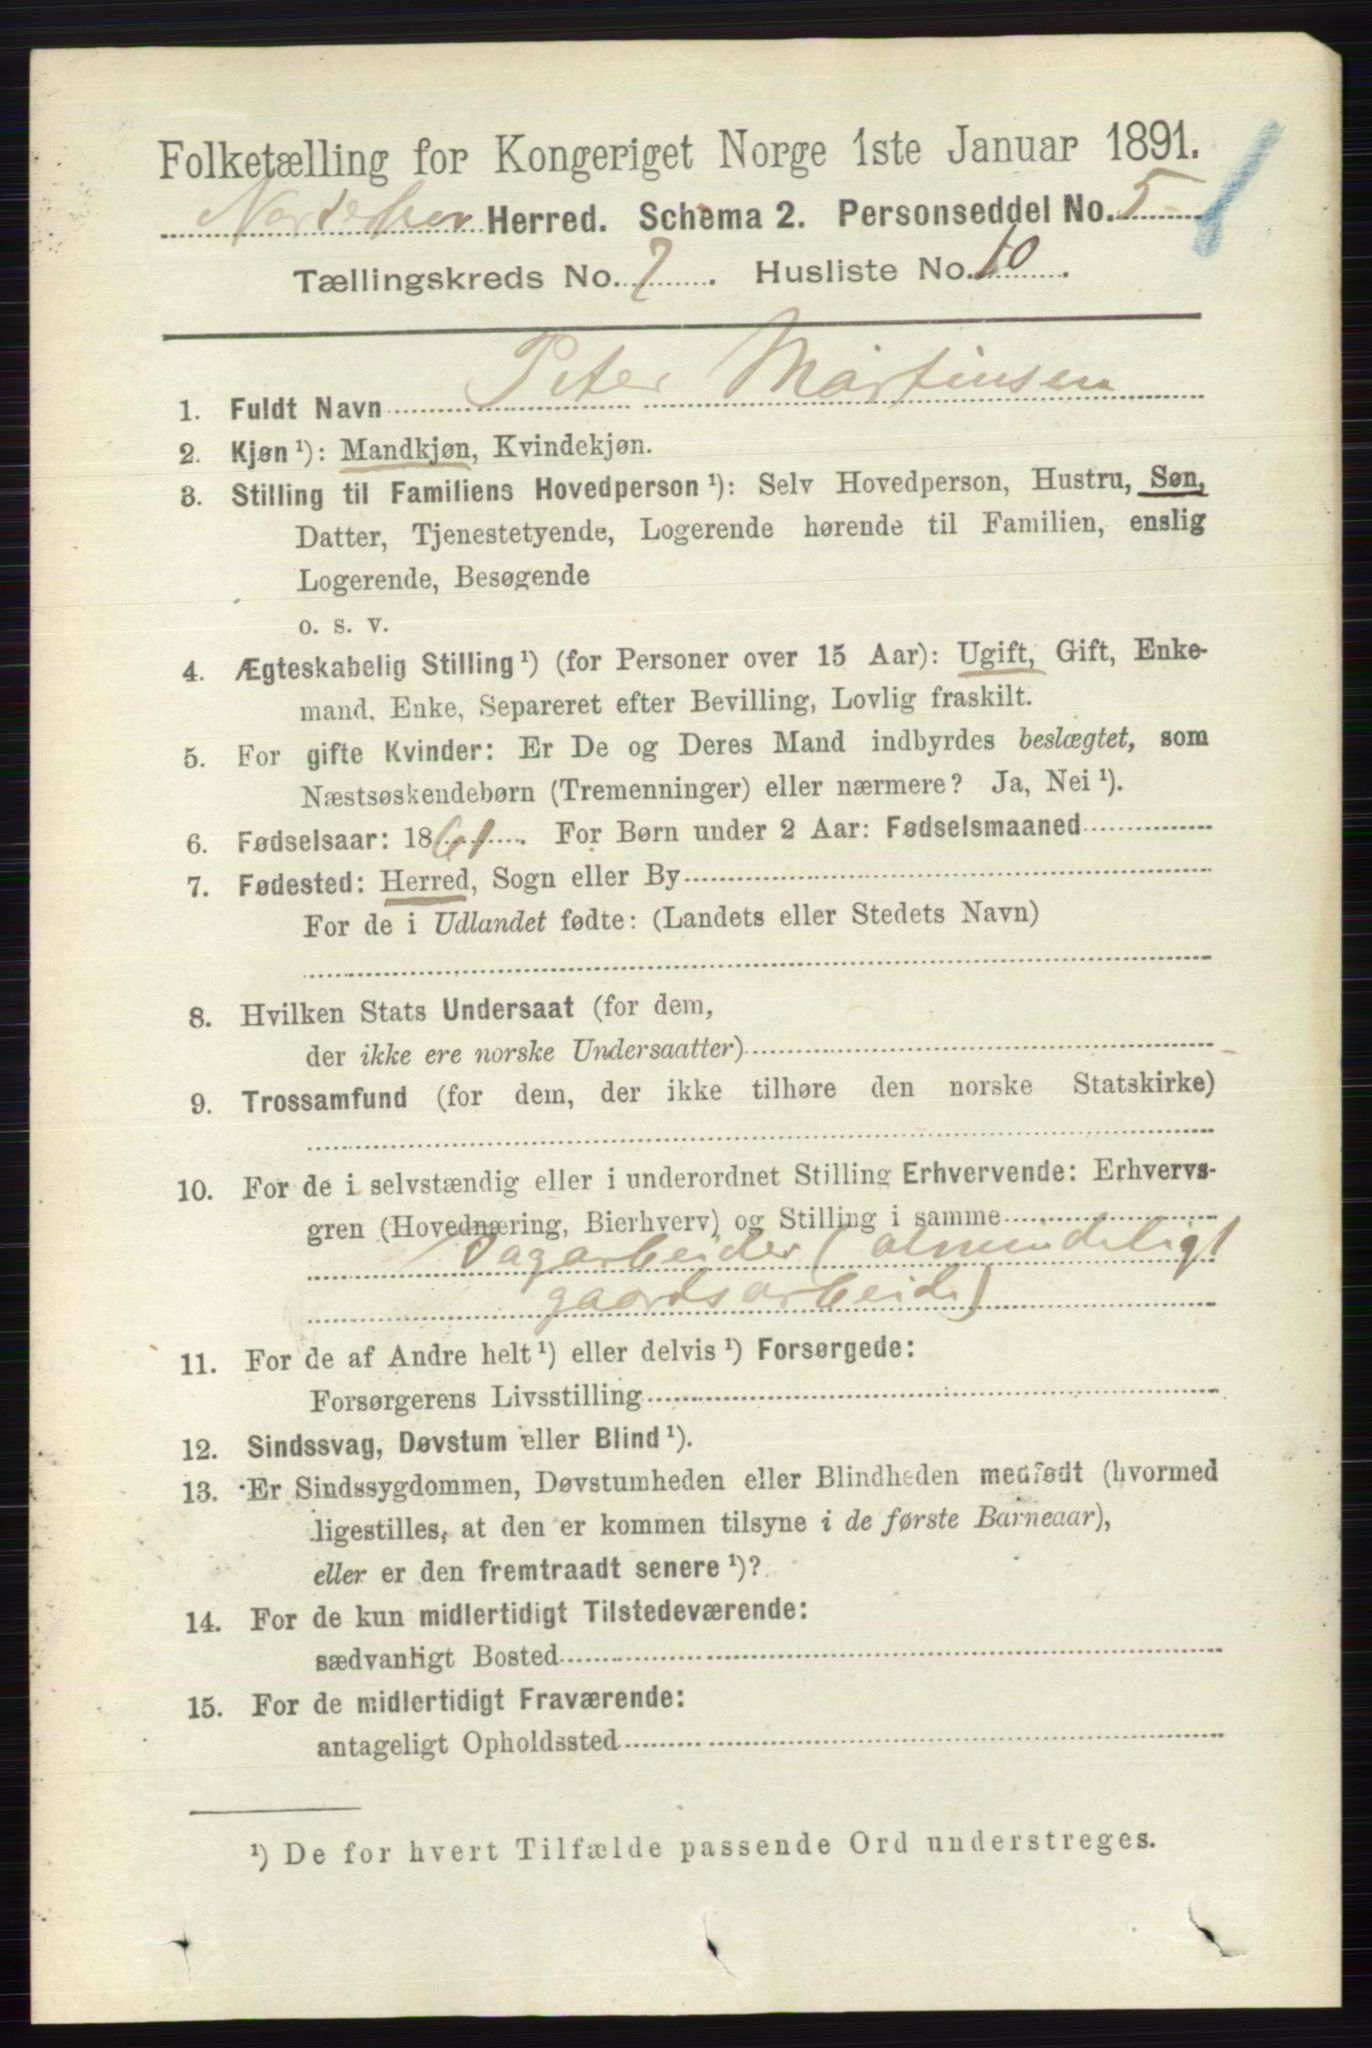 Folketælling for Kongeriget Norge 1ste Januar 1891.
Herred. Schema 2. Personseddel No. 5
Tællingskreds No. 7. Husliste No. 10.
1. Fuldt Navn Peter Martinsen
2. Kjøn ¹): Mandkjøn, Kvindekjøn.
3. Stilling til Familiens Hovedperson ¹): Selv Hovedperson, Hustru, Søn,
Datter, Tjenestetyende, Logerende hørende til Familien, enslig
Logerende, Besøgende
o. s. v.
4. Ægteskabelig Stilling ¹) (for Personer over 15 Aar): Ugift, Gift, Enke-
mand, Enke, Separeret efter Bevilling, Lovlig fraskilt.
5. For gifte Kvinder: Er De og Deres Mand indbyrdes beslægtet, som
Næstsøskendebørn (Tremenninger) eller nærmere? Ja, Nei ¹).
6. Fødselsaar: 1861. For Børn under 2 Aar: Fødselsmaaned
7. Fødested: Herred, Sogn eller By
For de i Udlandet fødte: (Landets eller Stedets Navn)
8. Hvilken Stats Undersaat (for dem,
der ikke ere norske Undersaatter)
9. Trossamfund (for dem, der ikke tilhøre den norske Statskirke)
10. For de i selvstændig eller i underordnet Stilling Erhvervende: Erhvervs-
gren (Hovednæring, Bierhverv) og Stilling i samme
Dagarbeider (almindeligt
gaardsarbeide)
11. For de af Andre helt ¹) eller delvis ¹) Forsørgede:
Forsørgerens Livsstilling
12. Sindssvag, Døvstum eller Blind ¹).
13. Er Sindssygdommen, Døvstumheden eller Blindheden medfødt (hvormed
ligestilles, at den er kommen tilsyne i de første Barneaar),
eller er den fremtraadt senere ¹)?
14. For de kun midlertidigt Tilstedeværende:
sædvanligt Bosted
15. For de midlertidigt Fraværende:
antageligt Opholdssted
¹) De for hvert Tilfælde passende Ord understreges.